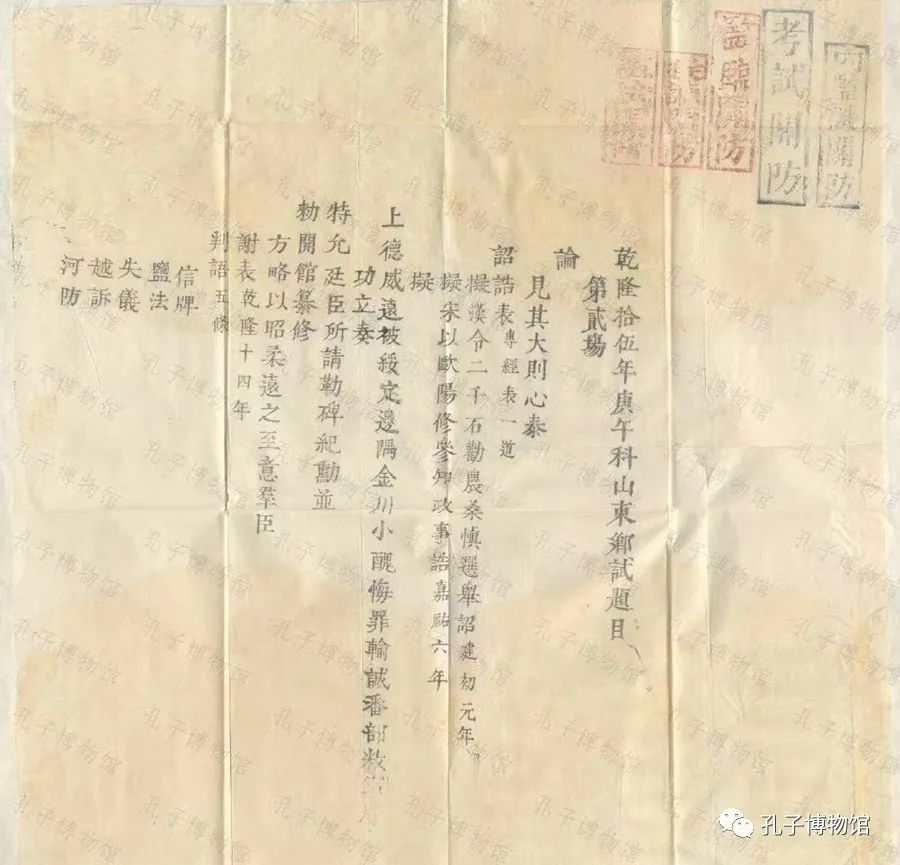 乾隆拾伍年庚午科山東鄉試題目
第貳場
論
見其大則心泰
詔誥表專經表一道
擬漢令二千石勸農桑慎選舉詔建初元年
擬宋以歐陽修參知政事誥嘉祐六年
擬
上德威遠被綏定邊隅金川小醜悔罪輸誠潘部救
功立奏
特允廷臣所請勒碑紀勳並
勅開館纂修
方略以昭柔遠之至意羣臣
謝表乾隆十四年
判語五條
信牌
鹽法
失儀
越訴
河防
考試關防
監臨關防
孔子博物馆